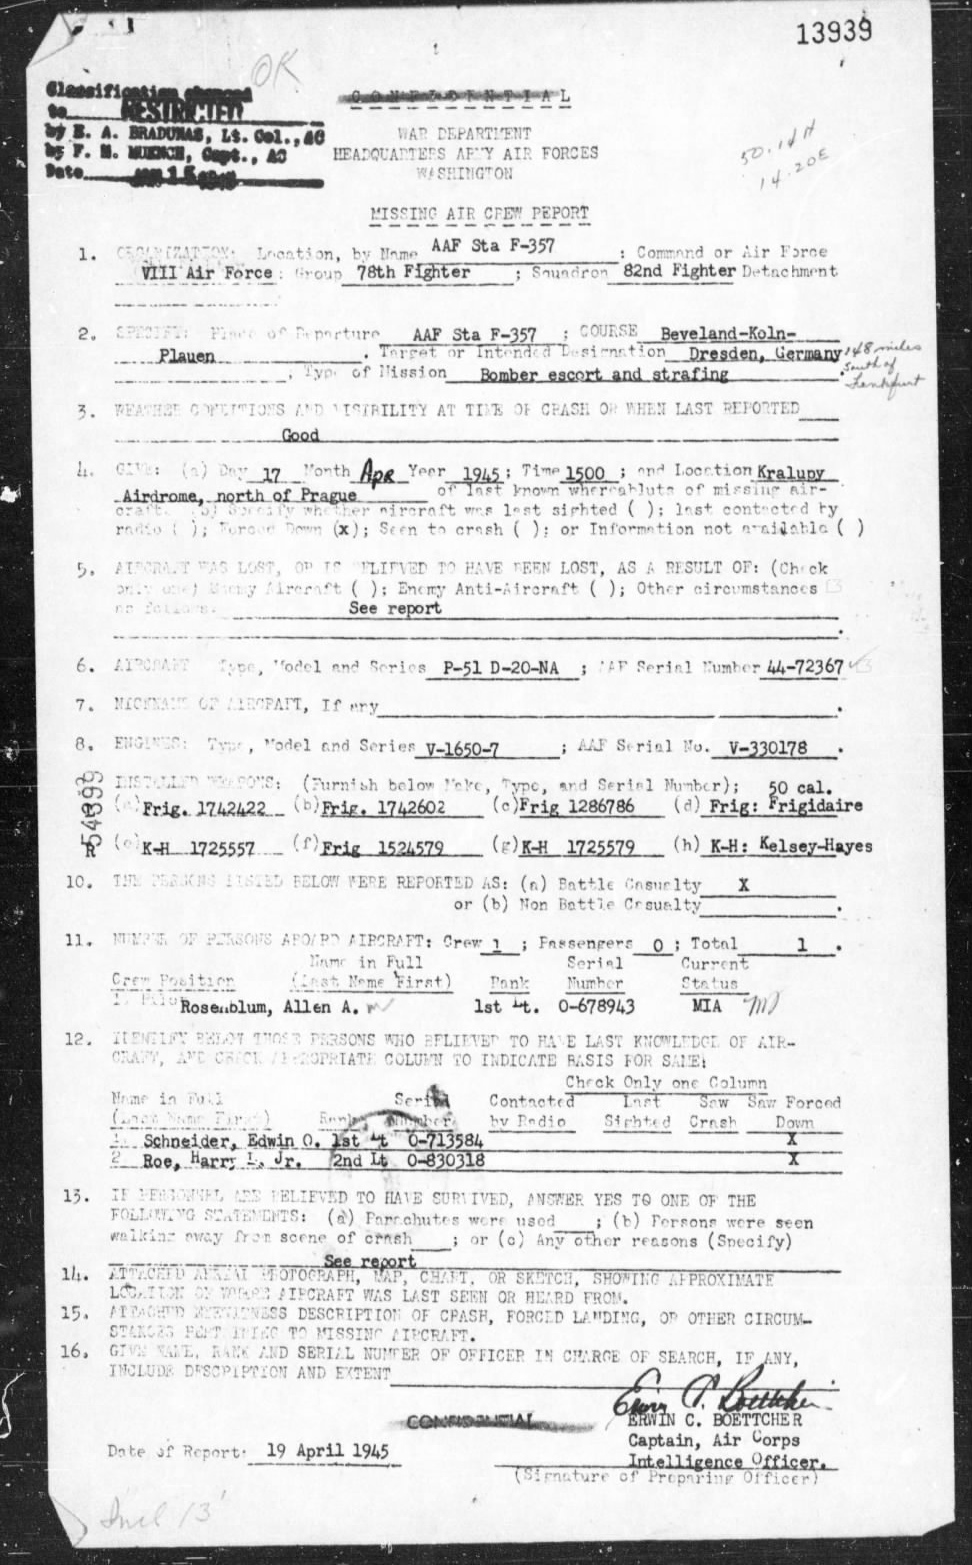 13939
OK
Classification changed
to RESTRICTED
by E. A. BRADUNAS, Lt. Col., AC
by F. M. MUENCH, Capt., AC
Date
CONFIDENTIAL
WAR DEPARTMENT
HEADQUARTERS ARMY AIR FORCES
WASHINGTON
50.14N
14.20E
MISSING AIR CREW REPORT
1. ORGANIZATION: Location, by Name AAF Sta F-357 : Command or Air Force
VIII Air Force : Group 78th Fighter ; Squadron 82nd Fighter Detachment
2. SPECIFY: Place of Departure AAF Sta F-357 ; COURSE Beveland-Koln-
Plauen . Target or Intended Designation Dresden, Germany 148 miles
south of
; Type of Mission Bomber escort and strafing .
3. WEATHER CONDITIONS AND VISIBILITY AT TIME OF CRASH OR WHEN LAST REPORTED
Good
4. GIVE: (a) Day 17 Month Apr Year 1945; Time 1500 ; and Location Kralupy
Airdrome, north of Prague of last known whereabluts of missing air-
craft. (b) Specify whether aircraft was last sighted ( ); last contacted by
radio ( ); Forced Down (x); Seen to crash ( ); or Information not available ( )
5. AIRCRAFT WAS LOST, OR IS BELIEVED TO HAVE BEEN LOST, AS A RESULT OF: (Check
only one) Enemy Aircraft ( ); Enemy Anti-Aircraft ( ); Other circumstances
as follows. See report
6. AIRCRAFT Type, Model and Series P-51 D-20-NA ; AAF Serial Number 44-72367
7. NICKNAME OF AIRCRAFT, If any .
8. ENGINES: Type, Model and Series V-1650-7 ; AAF Serial No. V-330178 .
R 54399
INSTALLED WEAPONS: (Furnish below Make, Type, and Serial Number); 50 cal.
(a) Frig. 1742422 (b) Frig. 1742602 (c) Frig 1286786 (d) Frig: Frigidaire
(e) K-H 1725557 (f) Frig 1524579 (g) K-H 1725579 (h) K-H: Kelsey-Hayes
10. THE PERSONS LISTED BELOW WERE REPORTED AS: (a) Battle Casualty X
or (b) Non Battle Casualty .
11. NUMBER OF PERSONS ABOARD AIRCRAFT: Crew 1 ; Passengers 0 ; Total 1 .
Name in Full Serial Current
Crew Position (Last Name First) Rank Number Status
1. Pilot Rosenblum, Allen A. 1st Lt. O-678943 MIA
12. IDENTIFY BELOW THOSE PERSONS WHO BELIEVED TO HAVE LAST KNOWLEDGE OF AIR-
CRAFT, AND CHECK APPROPRIATE COLUMN TO INDICATE BASIS FOR SAME:
Check Only one Column
Name in Full Serial Contacted Last Saw Saw Forced
(Last Name First) Rank Number by Radio Sighted Crash Down
1. Schneider, Edwin O. 1st Lt O-713584 X
2 Roe, Harry L. Jr. 2nd Lt O-830318 X
13. IF PERSONNEL ARE BELIEVED TO HAVE SURVIVED, ANSWER YES TO ONE OF THE
FOLLOWING STATEMENTS: (a) Parachutes were used ; (b) Persons were seen
walking away from scene of crash ; or (c) Any other reasons (Specify)
See report
14. ATTACHED AERIAL PHOTOGRAPH, MAP, CHART, OR SKETCH, SHOWING APPROXIMATE
LOCATION OF WHERE AIRCRAFT WAS LAST SEEN OR HEARD FROM.
15. ATTACHED EYEWITNESS DESCRIPTION OF CRASH, FORCED LANDING, OR OTHER CIRCUM-
STANCES PERTAINING TO MISSING AIRCRAFT.
16. GIVE NAME, RANK AND SERIAL NUMBER OF OFFICER IN CHARGE OF SEARCH, IF ANY,
INCLUDE DESCRIPTION AND EXTENT
CONFIDENTIAL
ERWIN C. BOETTCHER
Captain, Air Corps
Date of Report: 19 April 1945
Intelligence Officer.
(Signature of Preparing Officer)
Incl 13